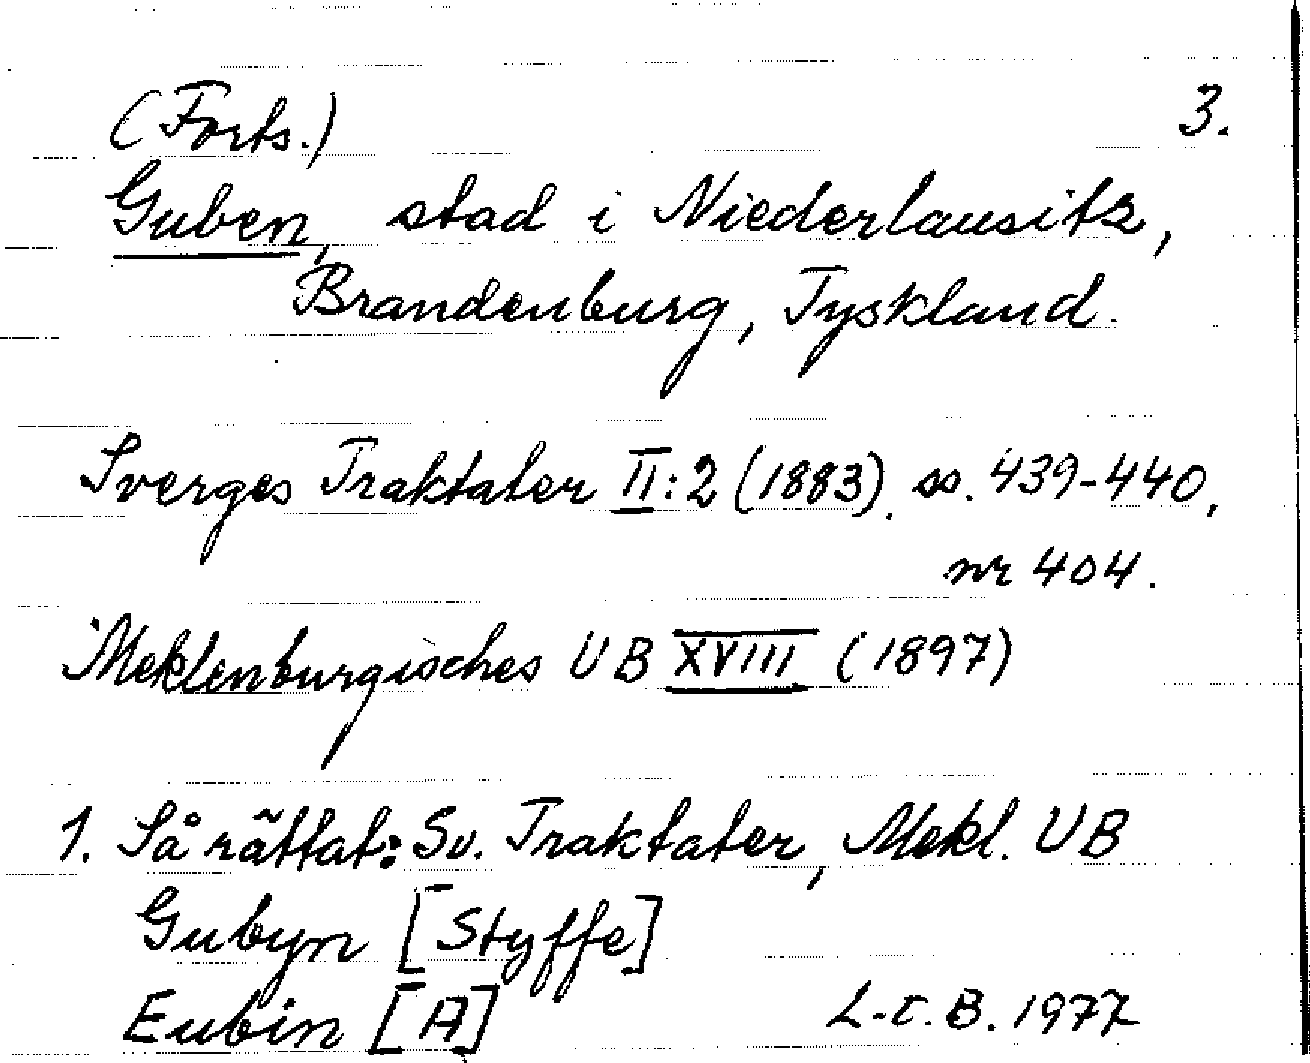 (Forts.) 3.
Guben, stad i Niederlausitz,
Brandenburg, Tyskland.
Sverges Traktater II:2 (1883). ss. 439-440,
nr 404.
Meklenburgisches UB XVIII (1897)
1. Så rättat: Sv. Traktater, Mekl. UB
Gubyn [Styffe]
Eubin [A] L-E.B. 1977